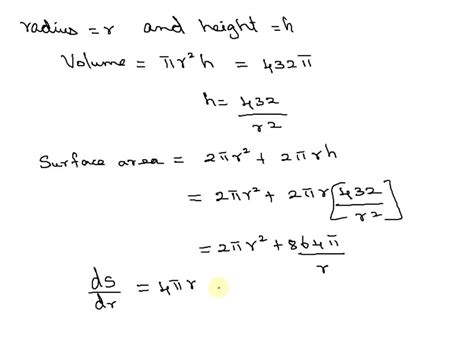 radius = r and height = h
Volume = πr²h = 432π
h = 432/r²
Surface area = 2πr² + 2πrh
= 2πr² + 2πr[432/r²]
= 2πr² + 864π/r
ds/dr = 4πr